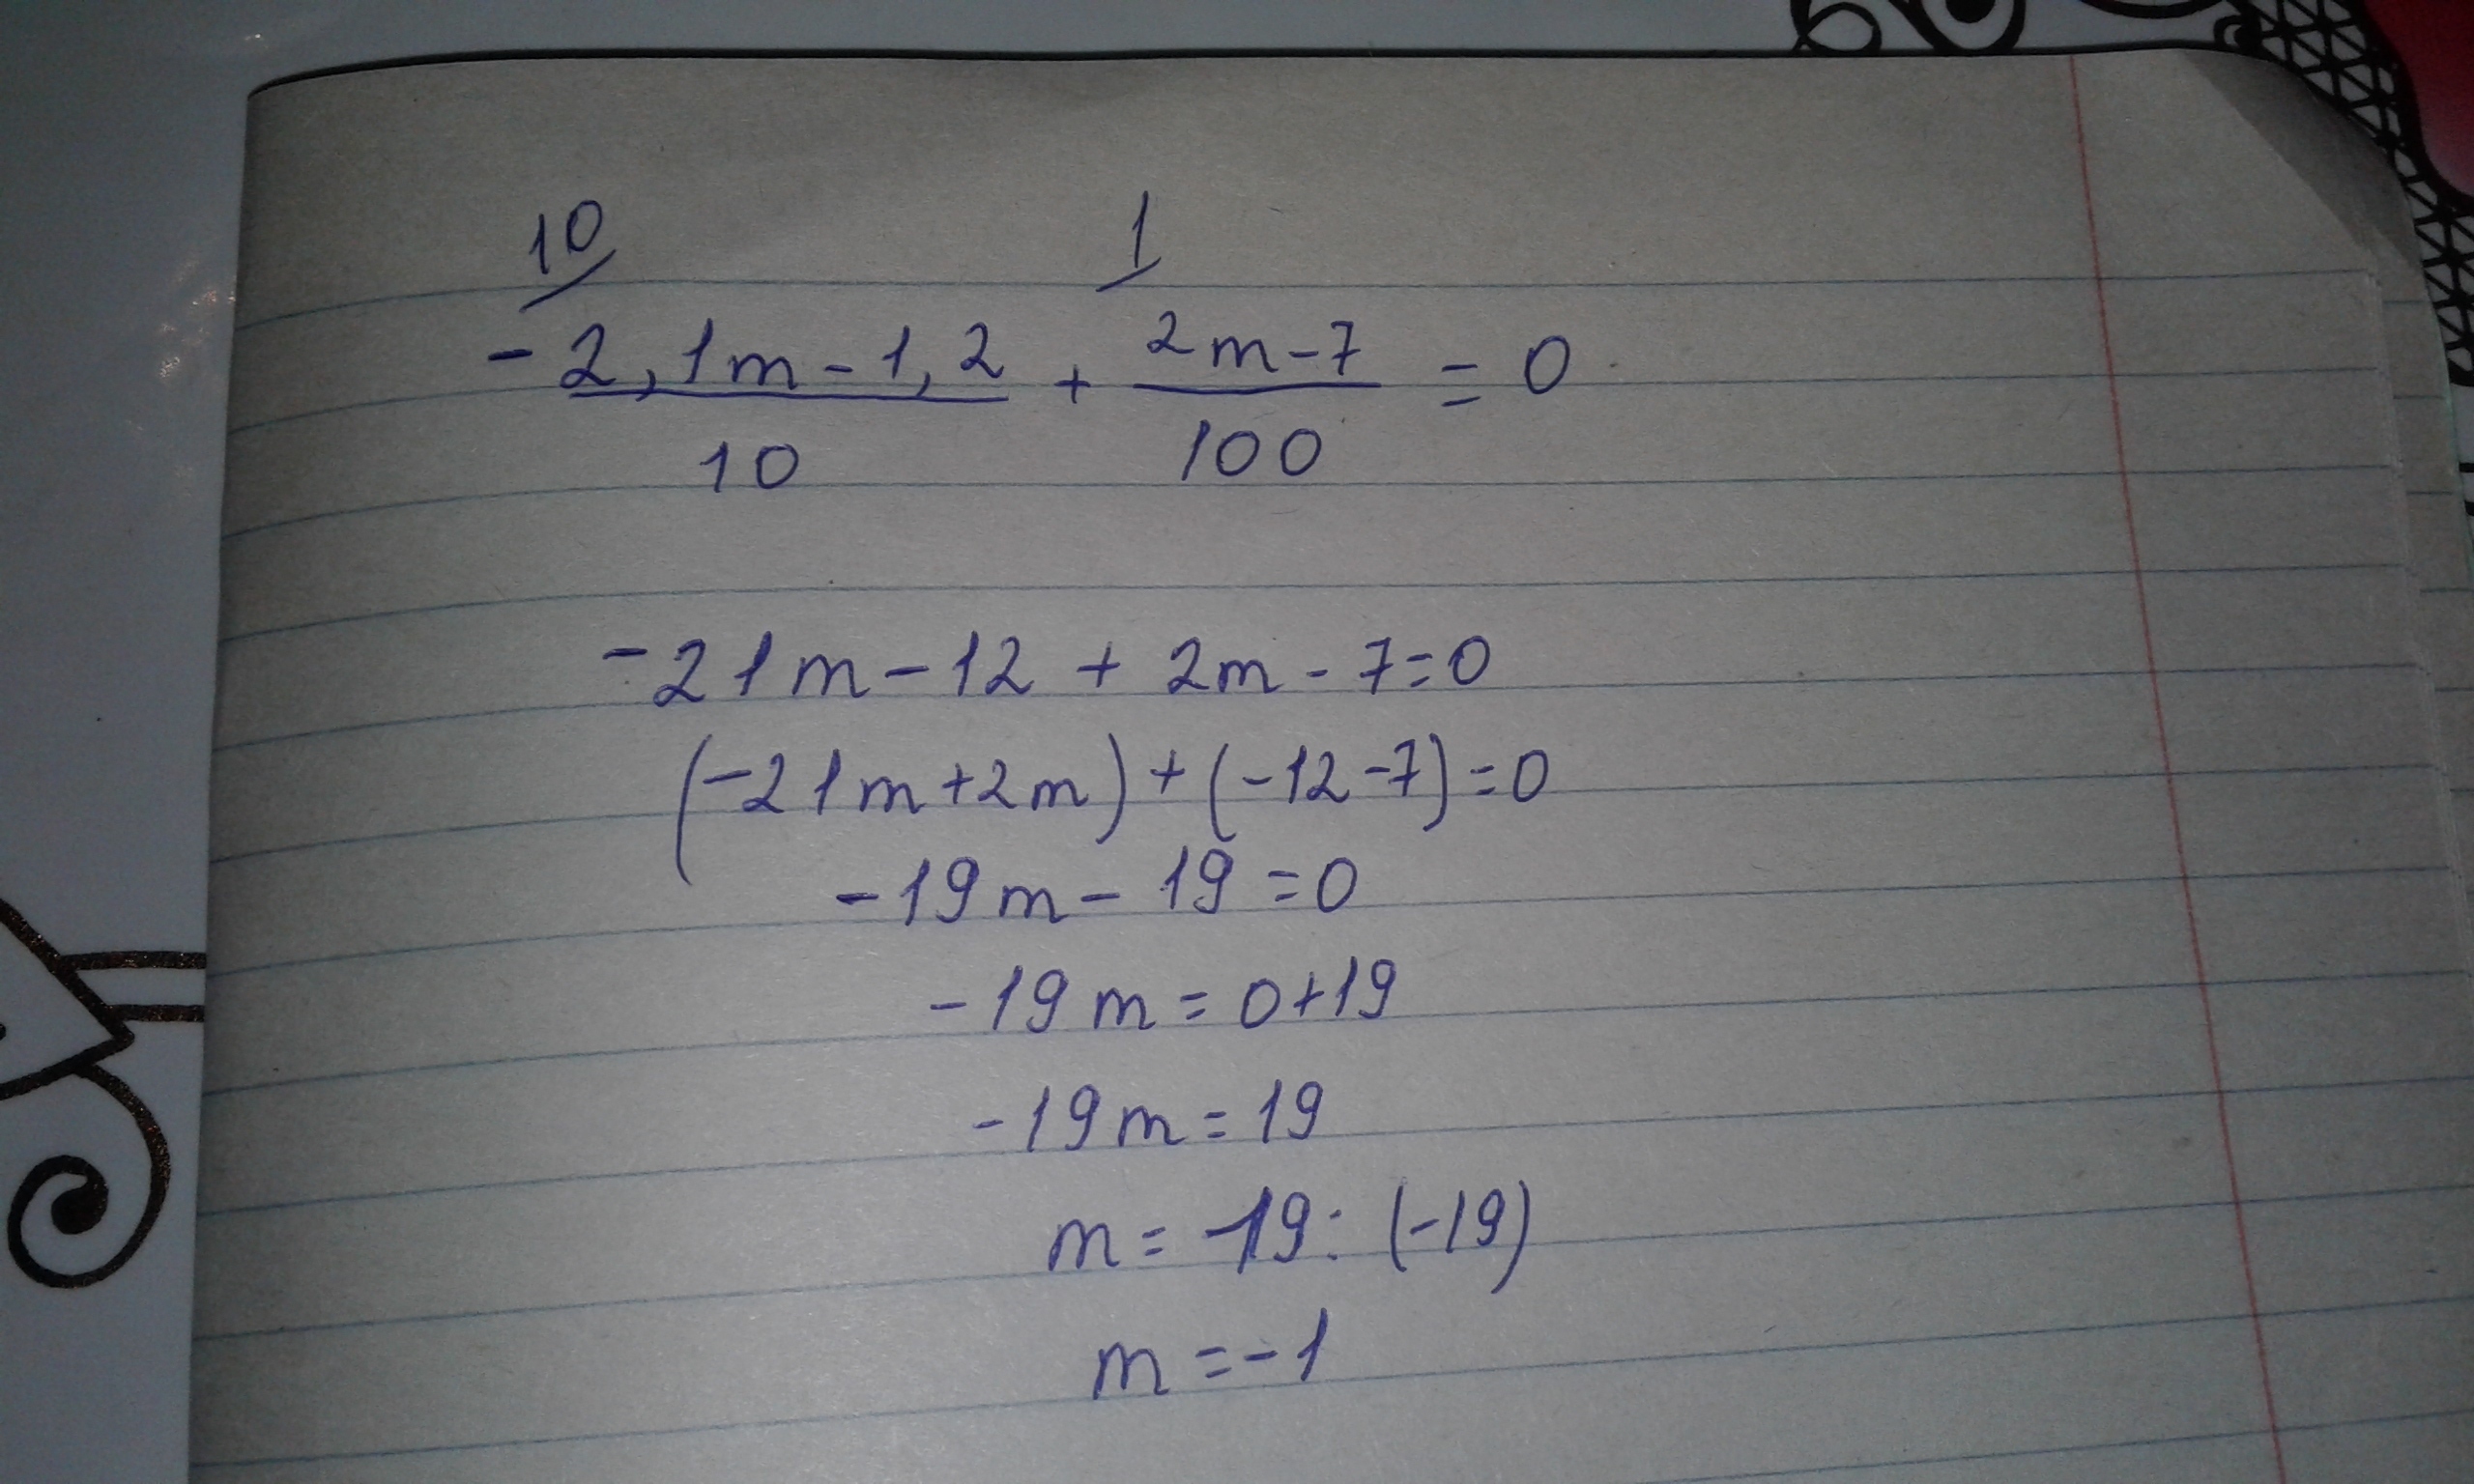 10/ 1/
- 2,1m - 1,2 / 10 + 2m - 7 / 100 = 0
-21m - 12 + 2m - 7 = 0
(-21m + 2m) + (-12 - 7) = 0
-19m - 19 = 0
-19m = 0 + 19
-19m = 19
m = -19 : (-19)
m = -1